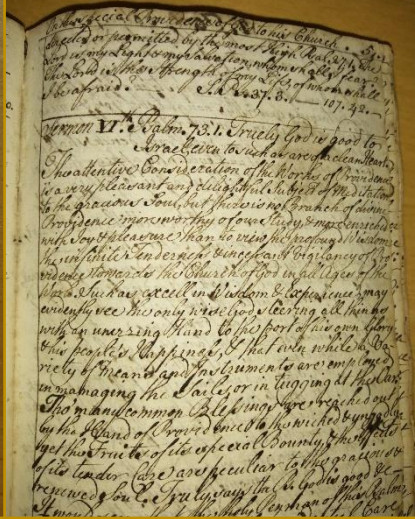 the special Providence of God to his Church. 
directed or permitted by the most high. Psal. 27.1. The
Lord is my Light & my Salvation, whom shall I fear
the Lord is the Strength of my Life, of whom shall
I be afraid. 37.3. 107.42.
Sermon VI.th Psalm. 73.1. Truely God is good to
Israel, even to such as are of a clean Heart.
The attentive Consideration of the Works of Providence
is a very pleasant and delightful Subject of Meditation
to the gracious Soul, but there is no Branch of divine
Providence more worthy of our Study, & more enriched
with Joy & pleasure than to view the profound Wisdom
the infinite Tenderness & incessant Vigilancy of Pro
vidence towards the Church of God in all Ages of the
World. Such as excell in Wisdom & Experience may
evidently see the only wise God steering all things
with an unerring Hand to the Port of his own Glory
& his people's Happiness, & that even while a Va
riety of Means and Instruments are employed
in mamaging the Sails, or in tugging at the Oars
Tho many common Blessings are reached out
by the Hand of Providence to the wicked & ungodly
yet the Fruits of its especial Bounty, & the Effects
of its tender Care are peculiar to the gracious &
renewed Soul. Truly says the God is good &
penman of this Psalm
Care